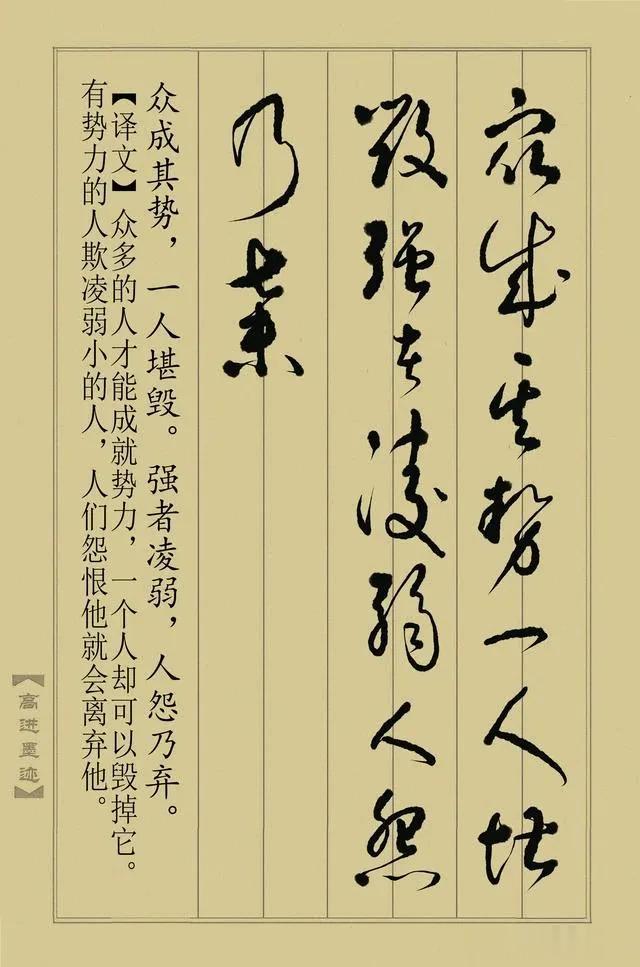 眾成其勢一人堪
毀强者淩弱人怨
乃棄
众成其势，一人堪毁。强者凌弱，人怨乃弃。
【译文】众多的人才能成就势力，一个人却可以毁掉它。
有势力的人欺凌弱小的人，人们怨恨他就会离弃他。
【高进墨迹】